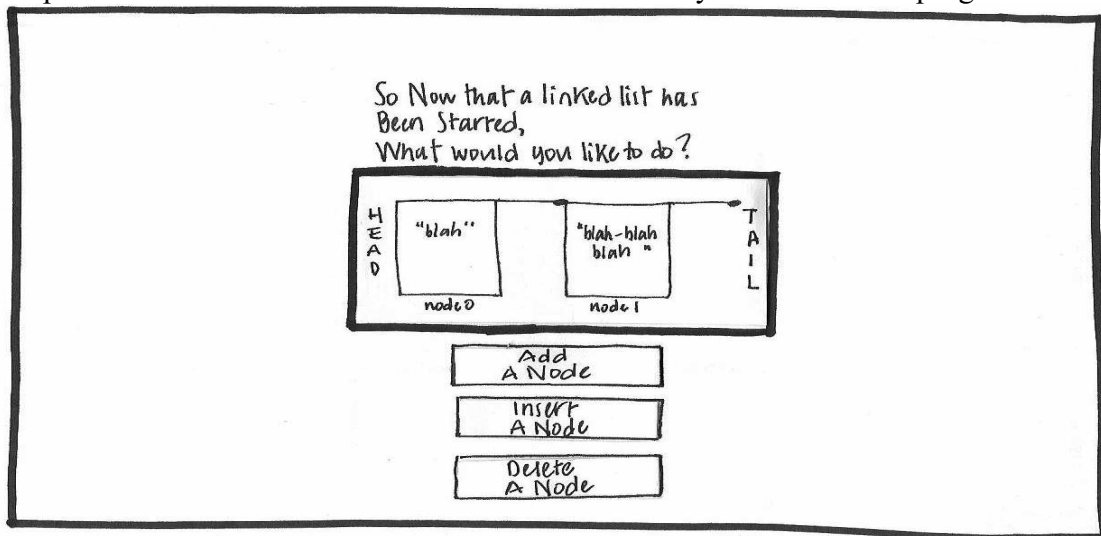 So Now that a linked list has
Been Starred,
What would you like to do?
HEAD
"blah"
node 0
"blah-blah
blah"
node 1
TAIL
Add
A Node
Insert
A Node
Delete
A Node